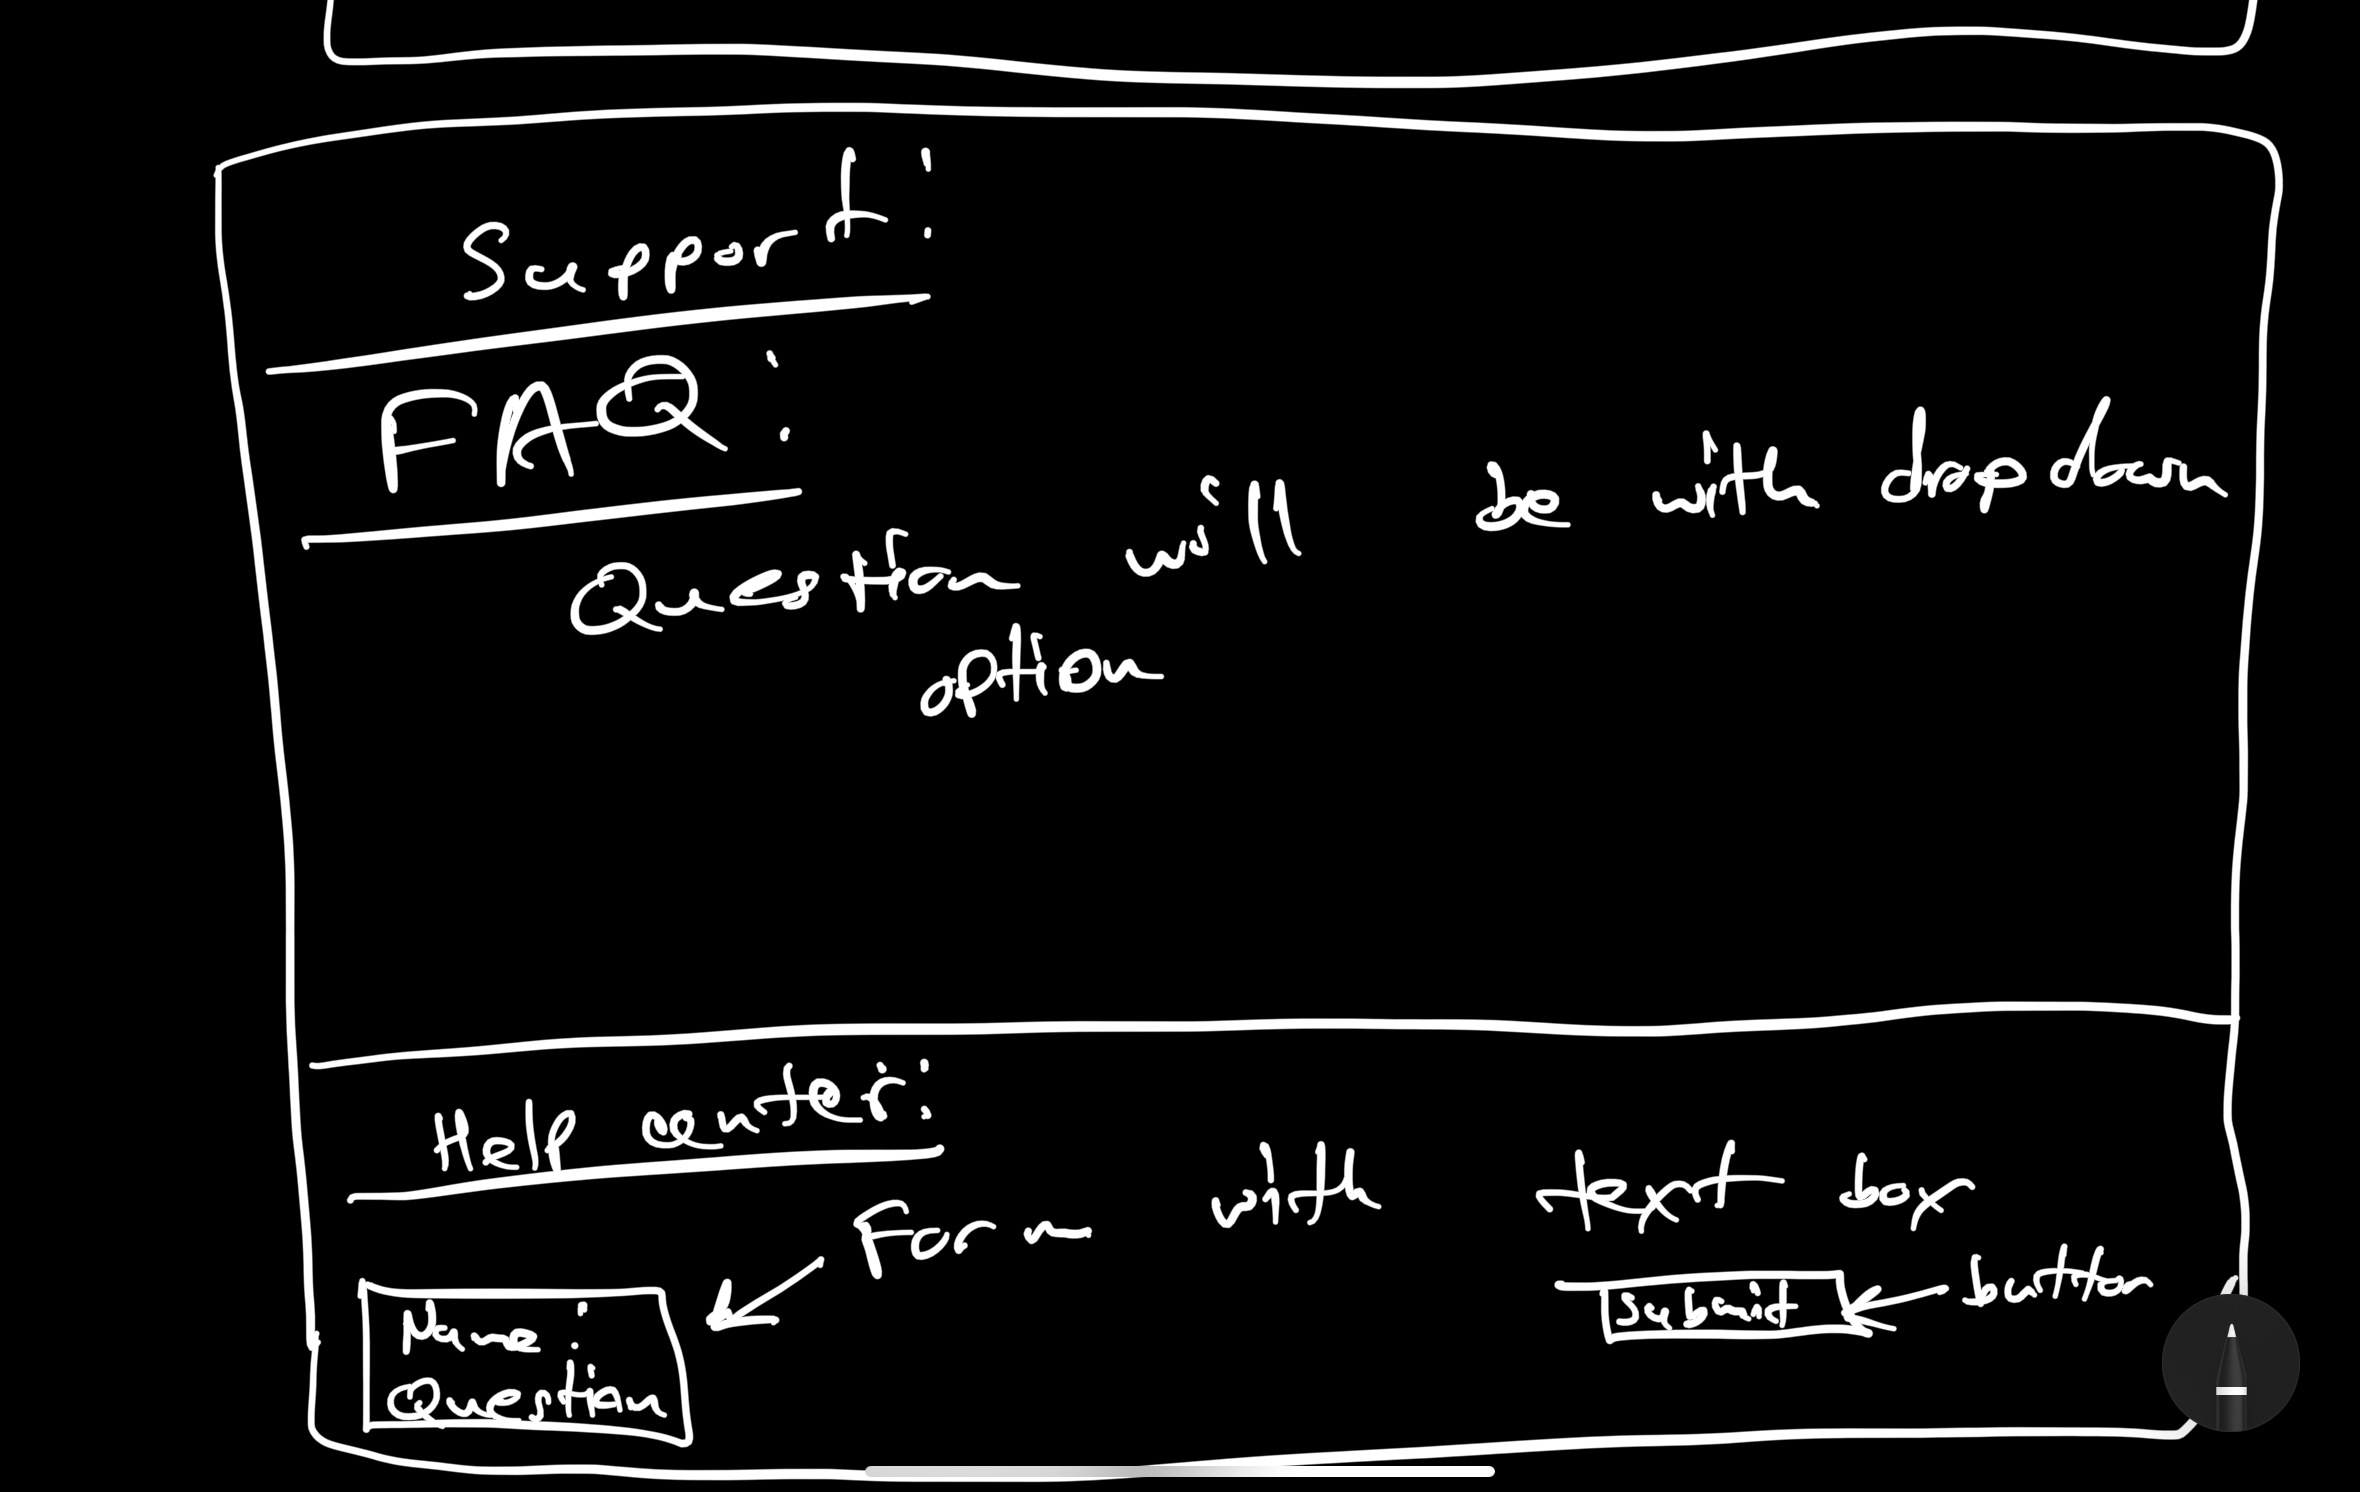 Support:
FAQ:
Question will be with dropdown
option
Help center:
Form with text box
Name:
Question
Submit
button